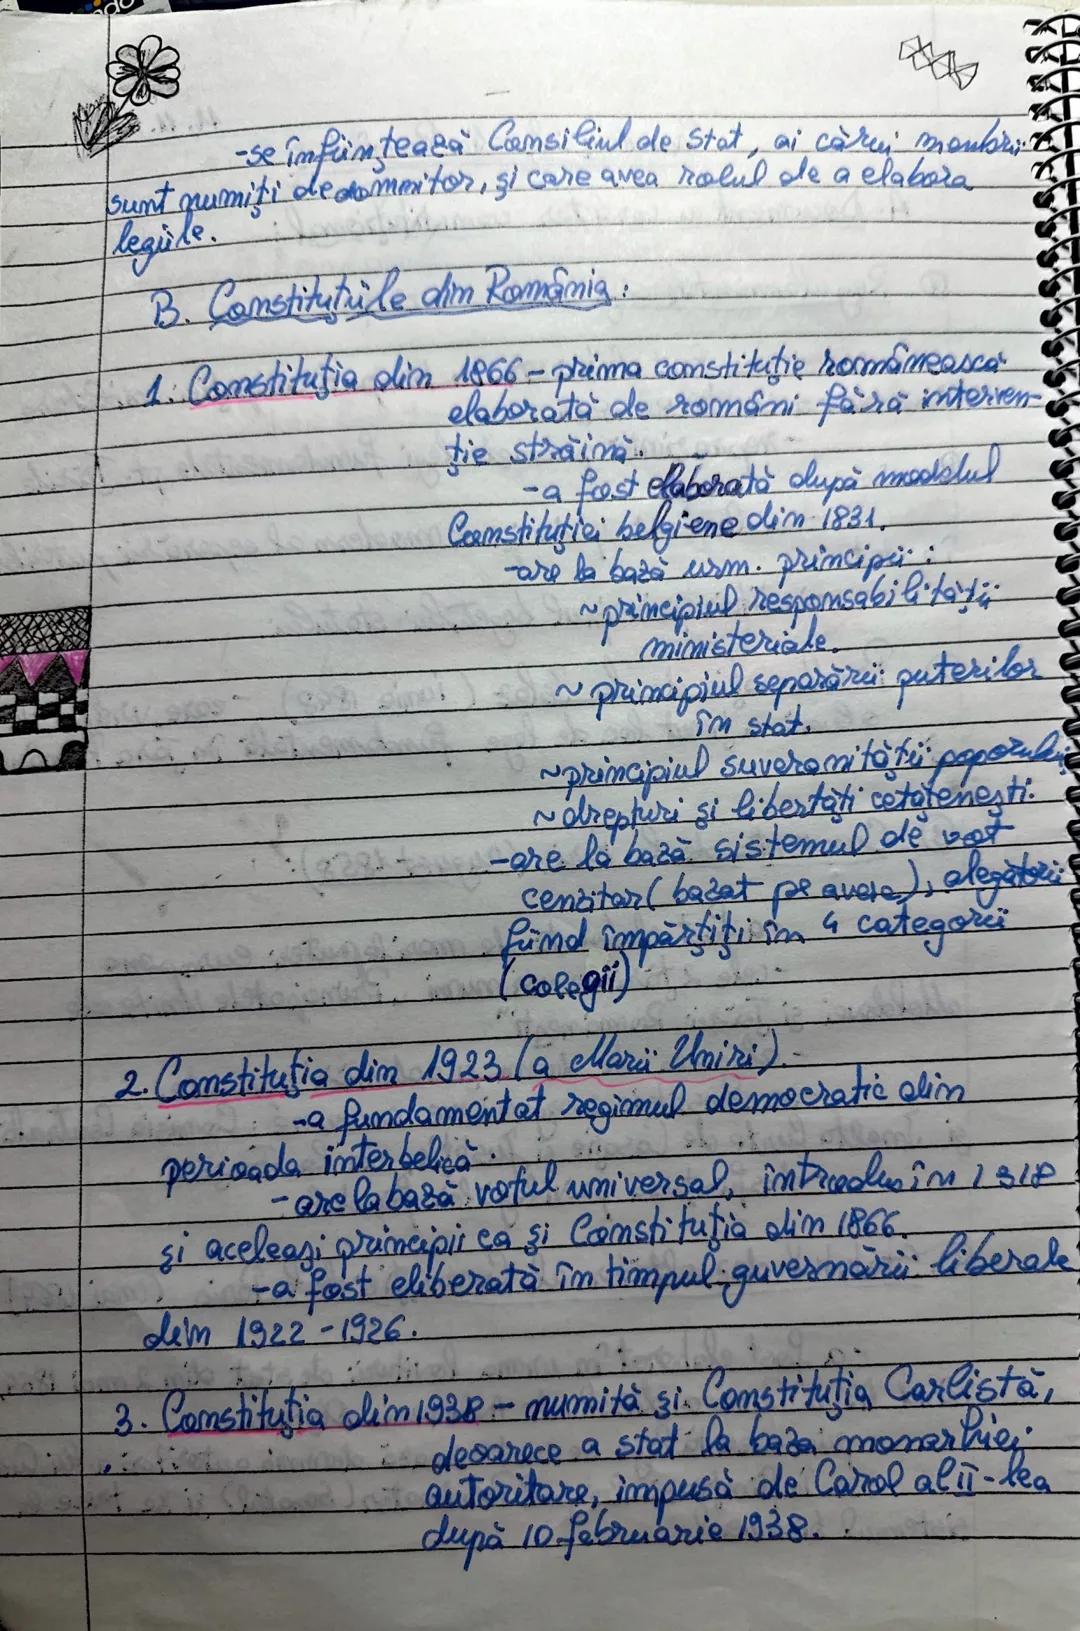 -se înființează Consiliul de Stat, ai cărui membrii
sunt numiți de domnitor, și care avea rolul de a elabora
legiile.
B. Constituțiile din România:
1. Constituția din 1866 - prima constituție românească
elaborată de români fără interven-
ție străină.
-a fost elaborată după modelul
Constituției belgiene din 1831.
-are la bază urm. principii:
~principiul responsabilității
ministeriale.
~ principiul separării puterilor
în stat.
~principiul suveranității poporului
~drepturi și libertăți cetățenești.
-are la bază sistemul de vot
cenzitar (bazat pe avere), alegătorii
fiind împărțiți în 4 categorii
(colegii)
2. Constituția din 1923 (a Marii Uniri).
-a fundamentat regimul democratic din
perioada interbelică.
-are la bază votul universal, introdus în 1918
și aceleași principii ca și Constituția din 1866.
-a fost eliberată în timpul guvernării liberale
din 1922-1926.
3. Constituția din 1938 - numită și Constituția Carlistă,
deoarece a stat la baza monarhiei
autoritare, impusă de Carol al II-lea
după 10 februarie 1938.